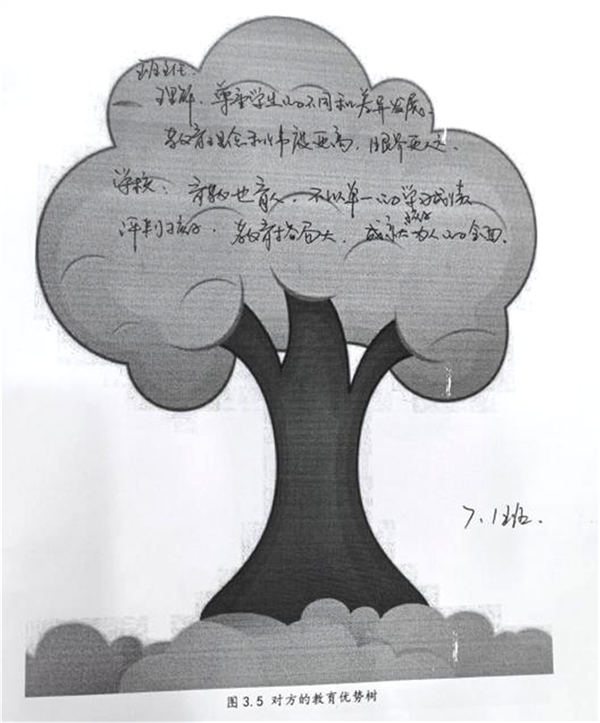 班主任:
理解、尊重学生的不同和差异发展。
教育理念和纬度更高,眼界更大.
学校: 育教也育人、不以单一的学习成绩
评判孩子. 教育格局大, 成就孩子为人的全面.
7.1班.
图 3.5 对方的教育优势树